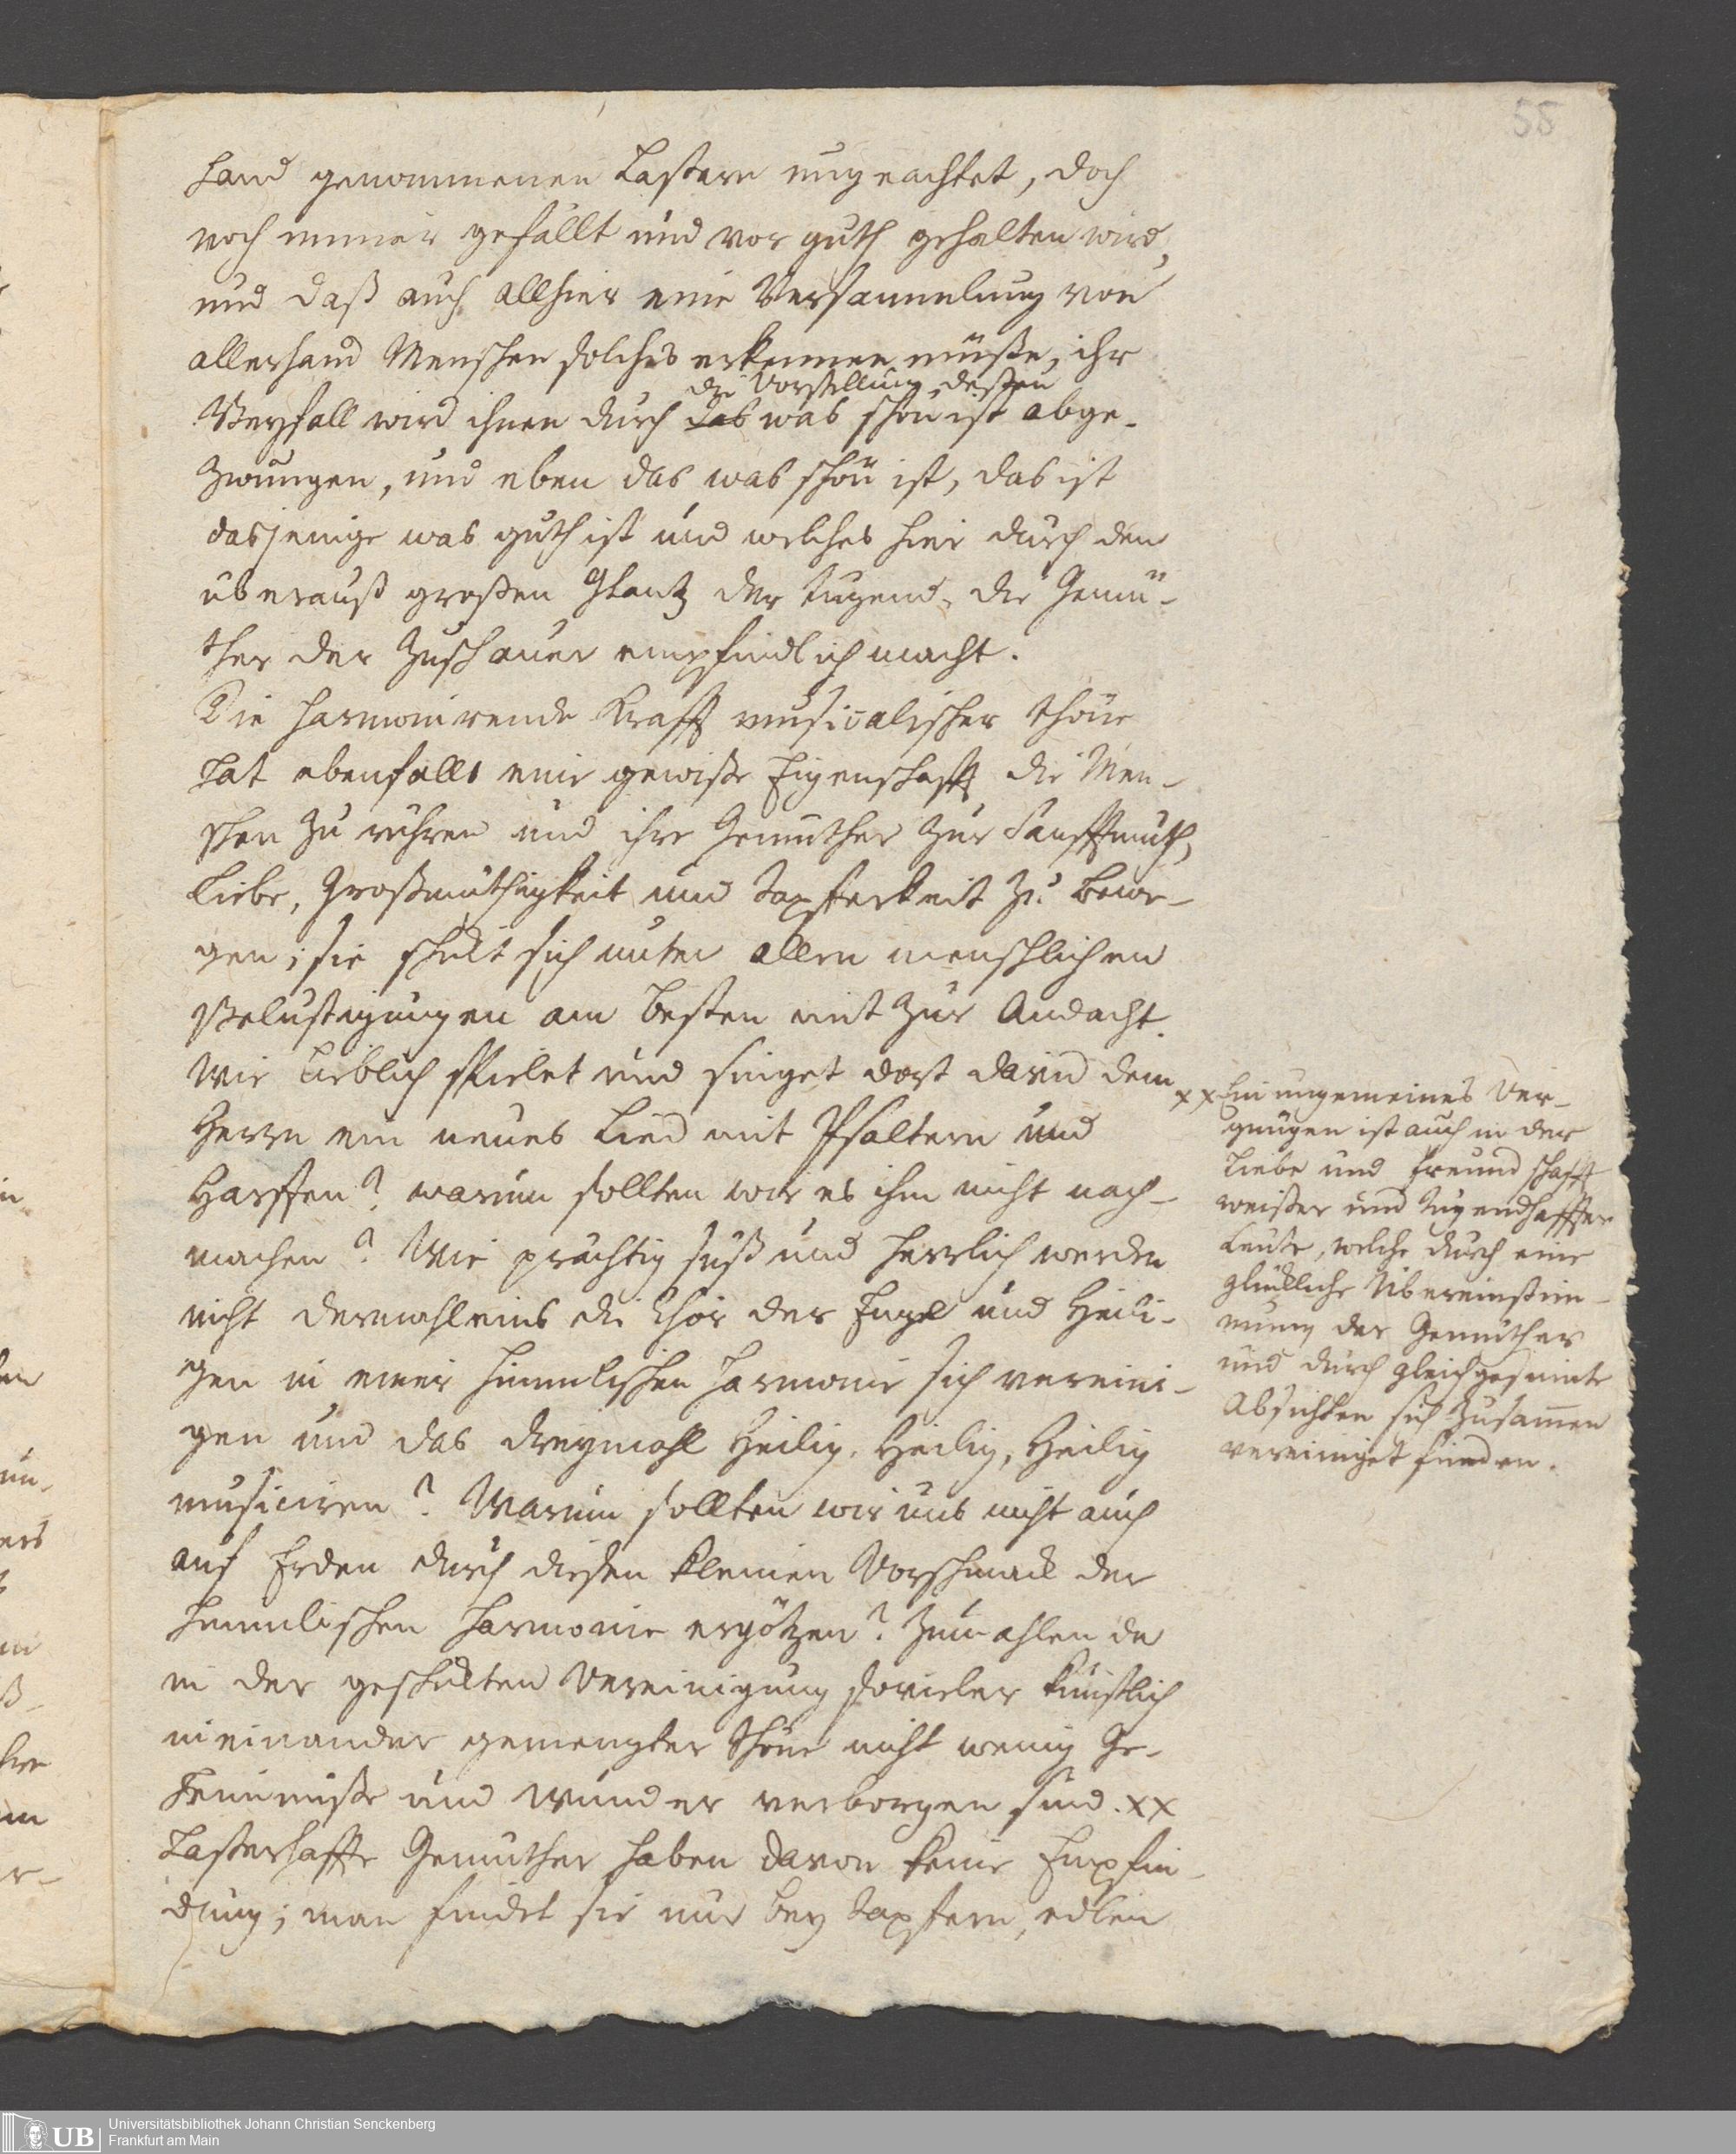 58
Hand genommenen Lastern ungeachtet, doch
noch immer gefällt und vor guth gehalten wird,
und daß auch allhier eine Versammlung von
allerhand Menschen solches erkennen müße, ihr
die Vorstellung deßen
Beyfall wird ihnen durch das was schön ist abge-
zwungen, und eben das was schön ist, das ist
dasjenige was guth ist und welches hier durch den
überauß großen Glantz der Tugend, die Gemü-
ther der Zuschauer empfindlich macht.
Die harmonirende Krafft musicalischer Thöne
hat ebenfalls eine gewiße Eigenschafft die Men-
schen zu rühren und ihre Gemüther zur Sanfftmuth,
Liebe, Großmüthigkeit und Tapfferkeit zu bewe-
gen; sie schickt sich unter allen menschlichen
Belustigungen am besten mit zur Andacht.
Wie lieblich spielet und singet dort David dem
Herrn ein neues Lied mit Psaltern und
Harffen? warum sollten wir es ihm nicht nach-
machen? Wie prächtig süß und herrlich werden
nicht dermahleins die Chör der Engel und Heili-
gen in einer himmlischen Harmonie sich vereini-
gen und das dreymahl Heilig, Heilig, Heilig
musiciren? Warum sollten wir uns nicht auch
auf Erden durch diesen kleinen Vorschmack der
himmlischen Harmonie ergötzen? Zumahlen da
in der geschickten Vereinigung sovieler künstlich
ineinander gemengter Thöne nicht wenig Ge-
heimniße und Wunder verborgen sind. xx
Lasterhaffte Gemüther haben davon keine Empfin-
dung; man findet sie nur bey tapfern, edlen
xx Ein ungemeines Ver-
gnügen ist auch in der
Liebe und Freundschafft
weißer und tugendhaffter
Leute, welche durch eine
glückliche Übereinstim-
mung der Gemüther
und durch gleichgesinnte
Absichten sich zusam̅en
vereiniget finden.
UB
Universitätsbibliothek Johann Christian Senckenberg
Frankfurt am Main